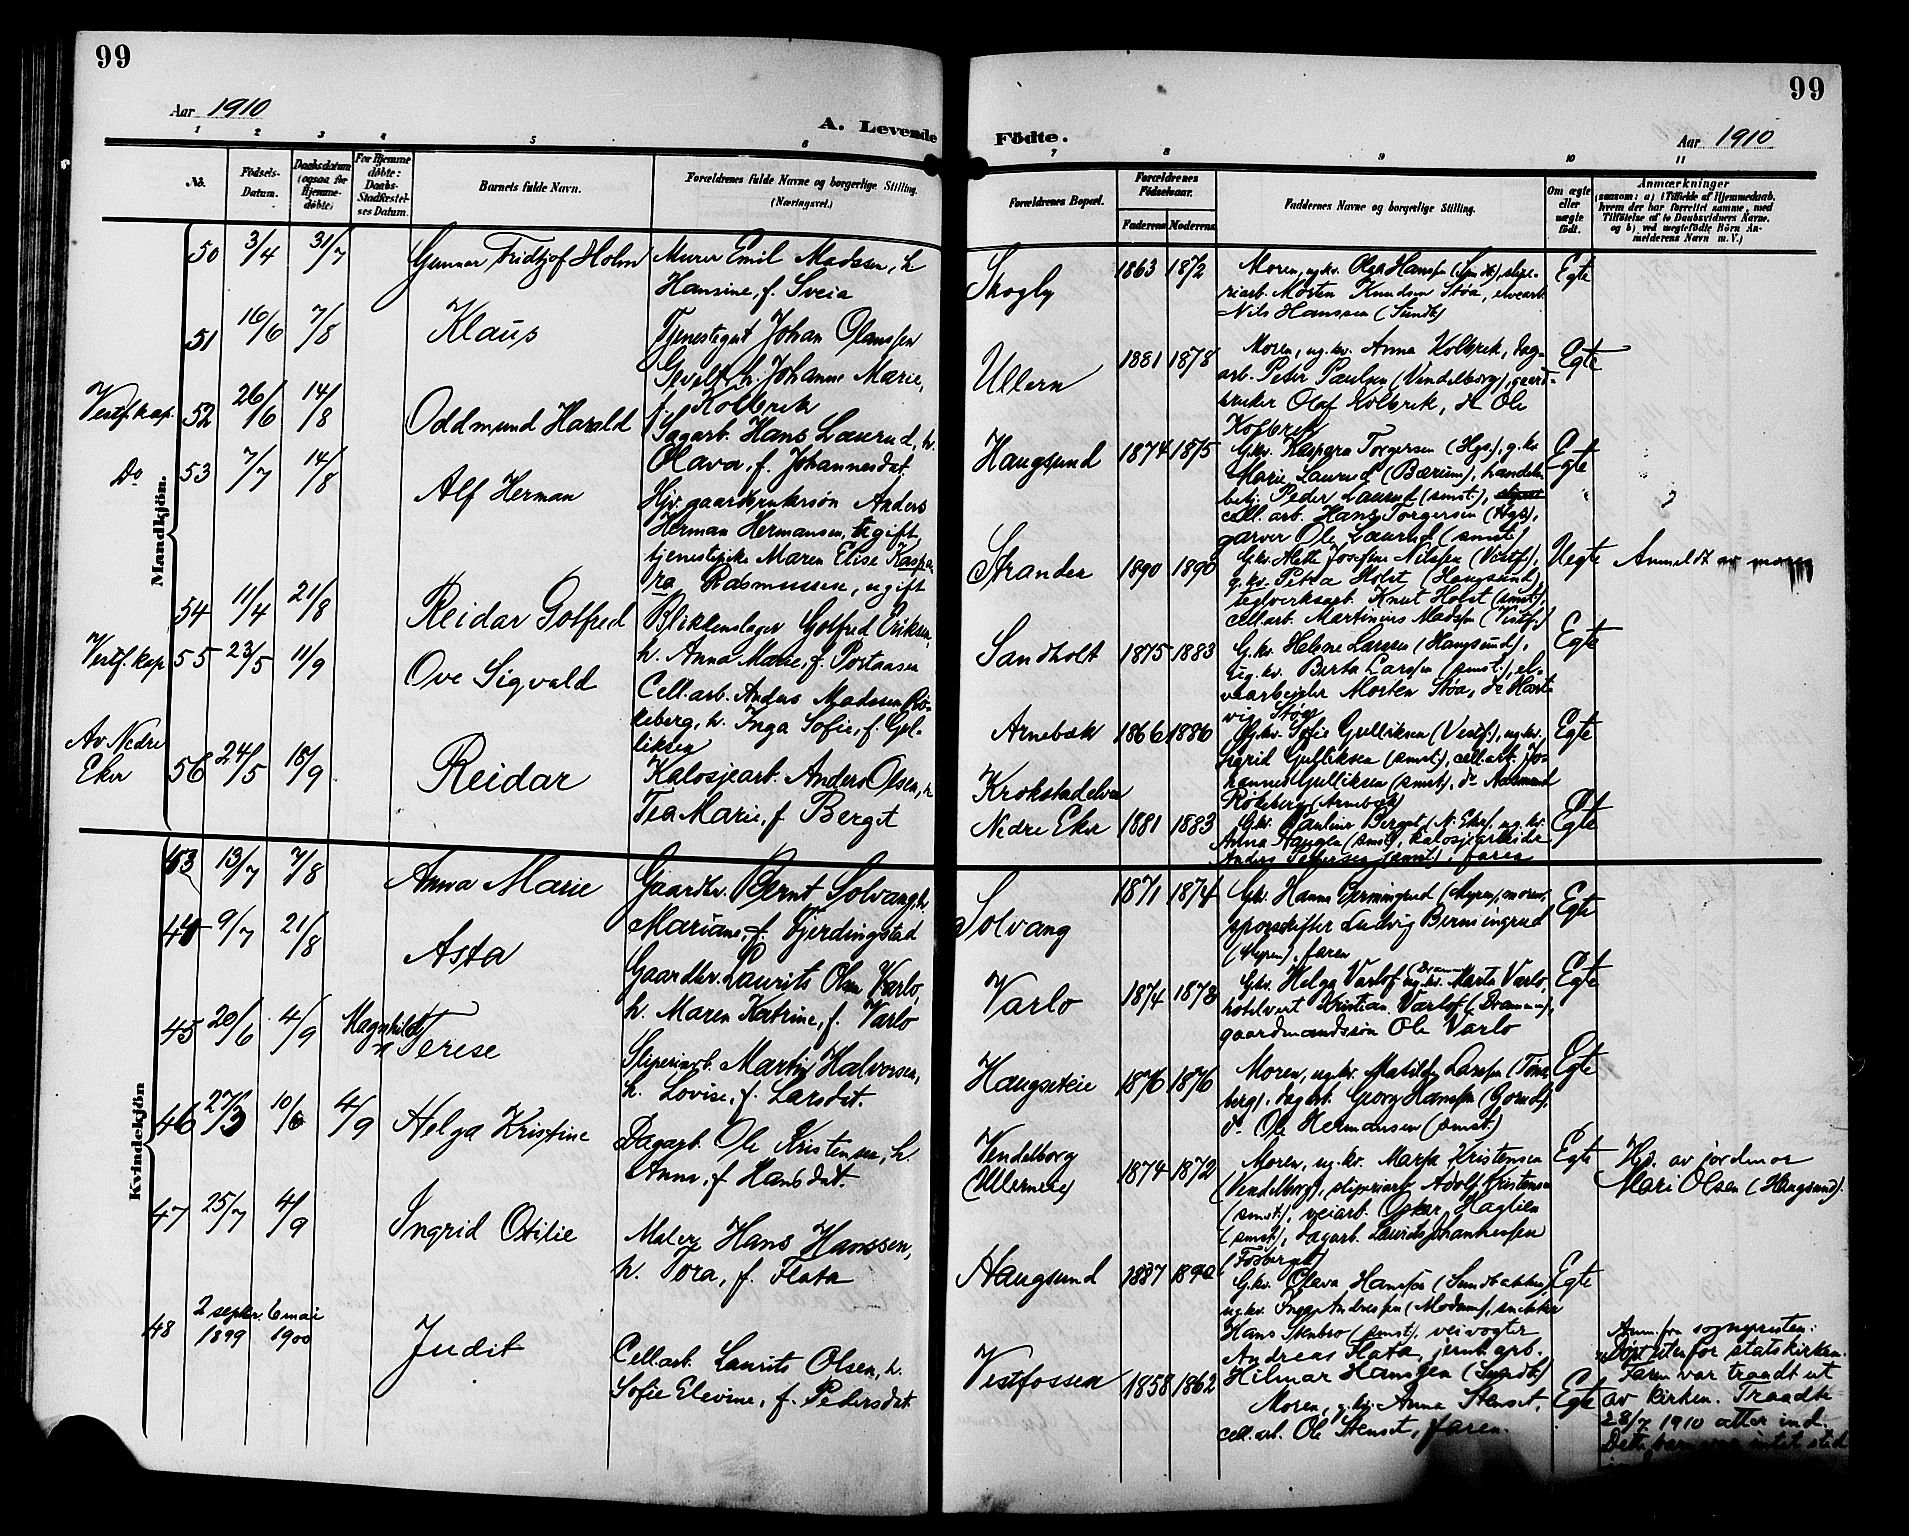 99
99
Aar 1910
A. Levende Födte.
Aar 1910
1 2 3 4 5 6 7 8 9 10 11
No.
Födsels-
Datum.
Daabsdatum
(ogsaa for
Hjemme-
döbte)
For Hjemme
döbte:
Daabs-
Stadfæstel-
ses Datum.
Barnets fulde Navn.
Forældrenes fulde Navne og borgerlige Stilling.
(Næringsvei.)
Forældrenes Bopæl.
Forældrenes
Födselsaar.
Faderens
Moderens
Faddernes Navne og borgerlige Stilling.
Om ægte
eller
uægte
födt.
Anmærkninger
(saasom: a) i Tilfælde af Hjemmedaab,
hvem der har forrettet samme, med
Tilföielse af to Daabsvidners Navne,
og b) ved uægtefödte Börn An-
melderens Navn m. V.)
Mandkjön.
50 3/4 31/7 Gunnar Fridtjof Holm
Murer Emil Madssen, h.
Hansine, f. Sveia
Skogly 1863 1872
Moren, ug.kv. Olga Hanssen (Sundb), slipe-
riarb. Morten Knudsen Støa, elvearb.
Nils Hanssen (Sundb)
Egte
51 16/6 7/8 Klaus
Tjenestegut Johan Olanssen
h. Johanne Marie,
f. Kolbræk
Ullern 1881 1878
Moren, ug.kv. Anna Kolbræk, dag-
arb. Peter Paulsen (Vendelborg), gaard-
bruker Olaf Kolbræk, do Ole
Kolbræk
Egte
Vestf. kap. 52 26/6 14/8 Oddmund Harald
Sagarb. Hans Laurud, h.
Olava, f. Johannesdat.
Haugsund 1874 1875
G.kv. Kaspara Torgersen (Hgs), g.kv
Marie Laurud (Bærum), handels-
betj. Peder Laurud (smst.),
cell.arb. Hans Torgersen (Hgs),
garver Ole Laurud (smst)
Egte
Do 53 7/7 14/8 Alf Herman
Hjv. gaardbrukersøn Anders
Herman Hermansen, ugift,
tjenestepike Maren Elise Kaspa-
ra Rasmussen, ugift
Strander 1890 1890
G.kv. Mette Josefine Nilssen (Vestf),
g.kv. Petra Holst (Haugsund),
teglverksarb. Knut Holst (smst),
cell.arb. Martinius Madssen (Vestf.)
Uegte Anmeldt av moren
54 11/4 21/8 Reidar Gotfred
Blikkenslager Gotfred Eriksen,
h. Anna Marie, f. Portaasen
Sandholt 1875 1883
G.kv. Helene Larssen (Haugsund),
ug.kv. Berta Larssen (smst.), el-
vearbeider Morten Støa, do Hart-
vig Støa
Egte
Vestf. kap 55 23/5 11/9 Ove Sigvald
Cell.arb. Anders Madssen Rø-
keberg, h. Inga Sofie, f. Gul-
liksen
Arnebæk 1866 1886
G.kv. Sofie Gulliksen (Vestf.), ug.kv.
Sigrid Gulliksen (smst.), cell.arb. Jo-
hannes Gulliksen (smst), do Aasmund
Røkeberg (Arnebæk)
Egte
Av Nedre
Eker 56 24/5 18/9 Reidar
Kalosjearb. Anders Olsen, h
Tea Marie, f. Berget
Krokstadelven
Nedre Eker 1881 1883
G.kv. Pauline Berget (N. Eker), ug.kv.
Anna Haugen (smst), kalosjearbeider
Anders Pettersen (smst), faren
Egte
Kvindekjön
43 13/7 7/8 Anna Marie
Gaardbr. Bernt Solvang, h.
Mariane, f. Fjerdingstad
Solvang 1871 1874
G.kv. Hanna Bermingrud (Myren), moren,
sporskifter Ludvig Bermingrud
(Myren), faren
Egte
44 9/7 21/8 Asta
Gaardbr. Laurits Olsen Varlo,
h. Maren Katrine, f. Varlo
Varlo 1874 1878
G.kv. Helga Varlo (Dramm), ug.kv. Marta Varlo,
hotelvert Kristian Varlo (Dramm),
gaardmandssøn Ole Varlo
Egte
45 20/6 4/9 Magnhild Terese
Sliperiarb. Martin Halvorsen,
h. Lovise, f. Larsdat.
Haugseteie 1876 1876
Moren, ug.kv. Matilde Larssen (Tøns-
berg), dagarb. Georg Hanssen (Gorud),
do. Ole Hermansen (smst.)
Egte
46 27/3 10/6 4/9 Helga Kristine
Dagarb. Ole Kristensen, h.
Anne, f. Hansdat.
Vendelborg
(Ullerneie) 1874 1872
Moren, ug.kv. Marta Kristensen
(Vendelborg), sliperiarb. Adolf Kristensen
(smst.), veiarb. Oskar Haglien
(smst), dagarb. Laurits Johannessen
(Fosberget)
Egte
Hj. av jordmor
Mari Olsen (Haugsund).
47 25/7 4/9 Ingrid Otilie
Maler Hans Hanssen,
h. Tora, f. Flata
Haugsund 1887 1890
G.kv. Olava Hanssen (Sundbakken),
ug.kv. Inga Andressen (Modum), snekker
Hans Stenbro (smst), veivogter
Andreas Flata, jernb.arb.
Hilmar Hanssen (Sundb)
Egte
48 2 septbr. 1899 6 mai 1900 Judit
Cell.arb. Laurits Olsen, h.
Sofie Elevine, f. Pedersdat.
Vestfossen 1858 1862
Moren, g.kv. Anna Stenset,
cell.arb. Ole Stenset, faren.
Egte
Anm. fra sognepresten:
Døpt utenfor statskirken.
Faren var traadt ut
av kirken. Traadte
28/7 1910 atter ind.